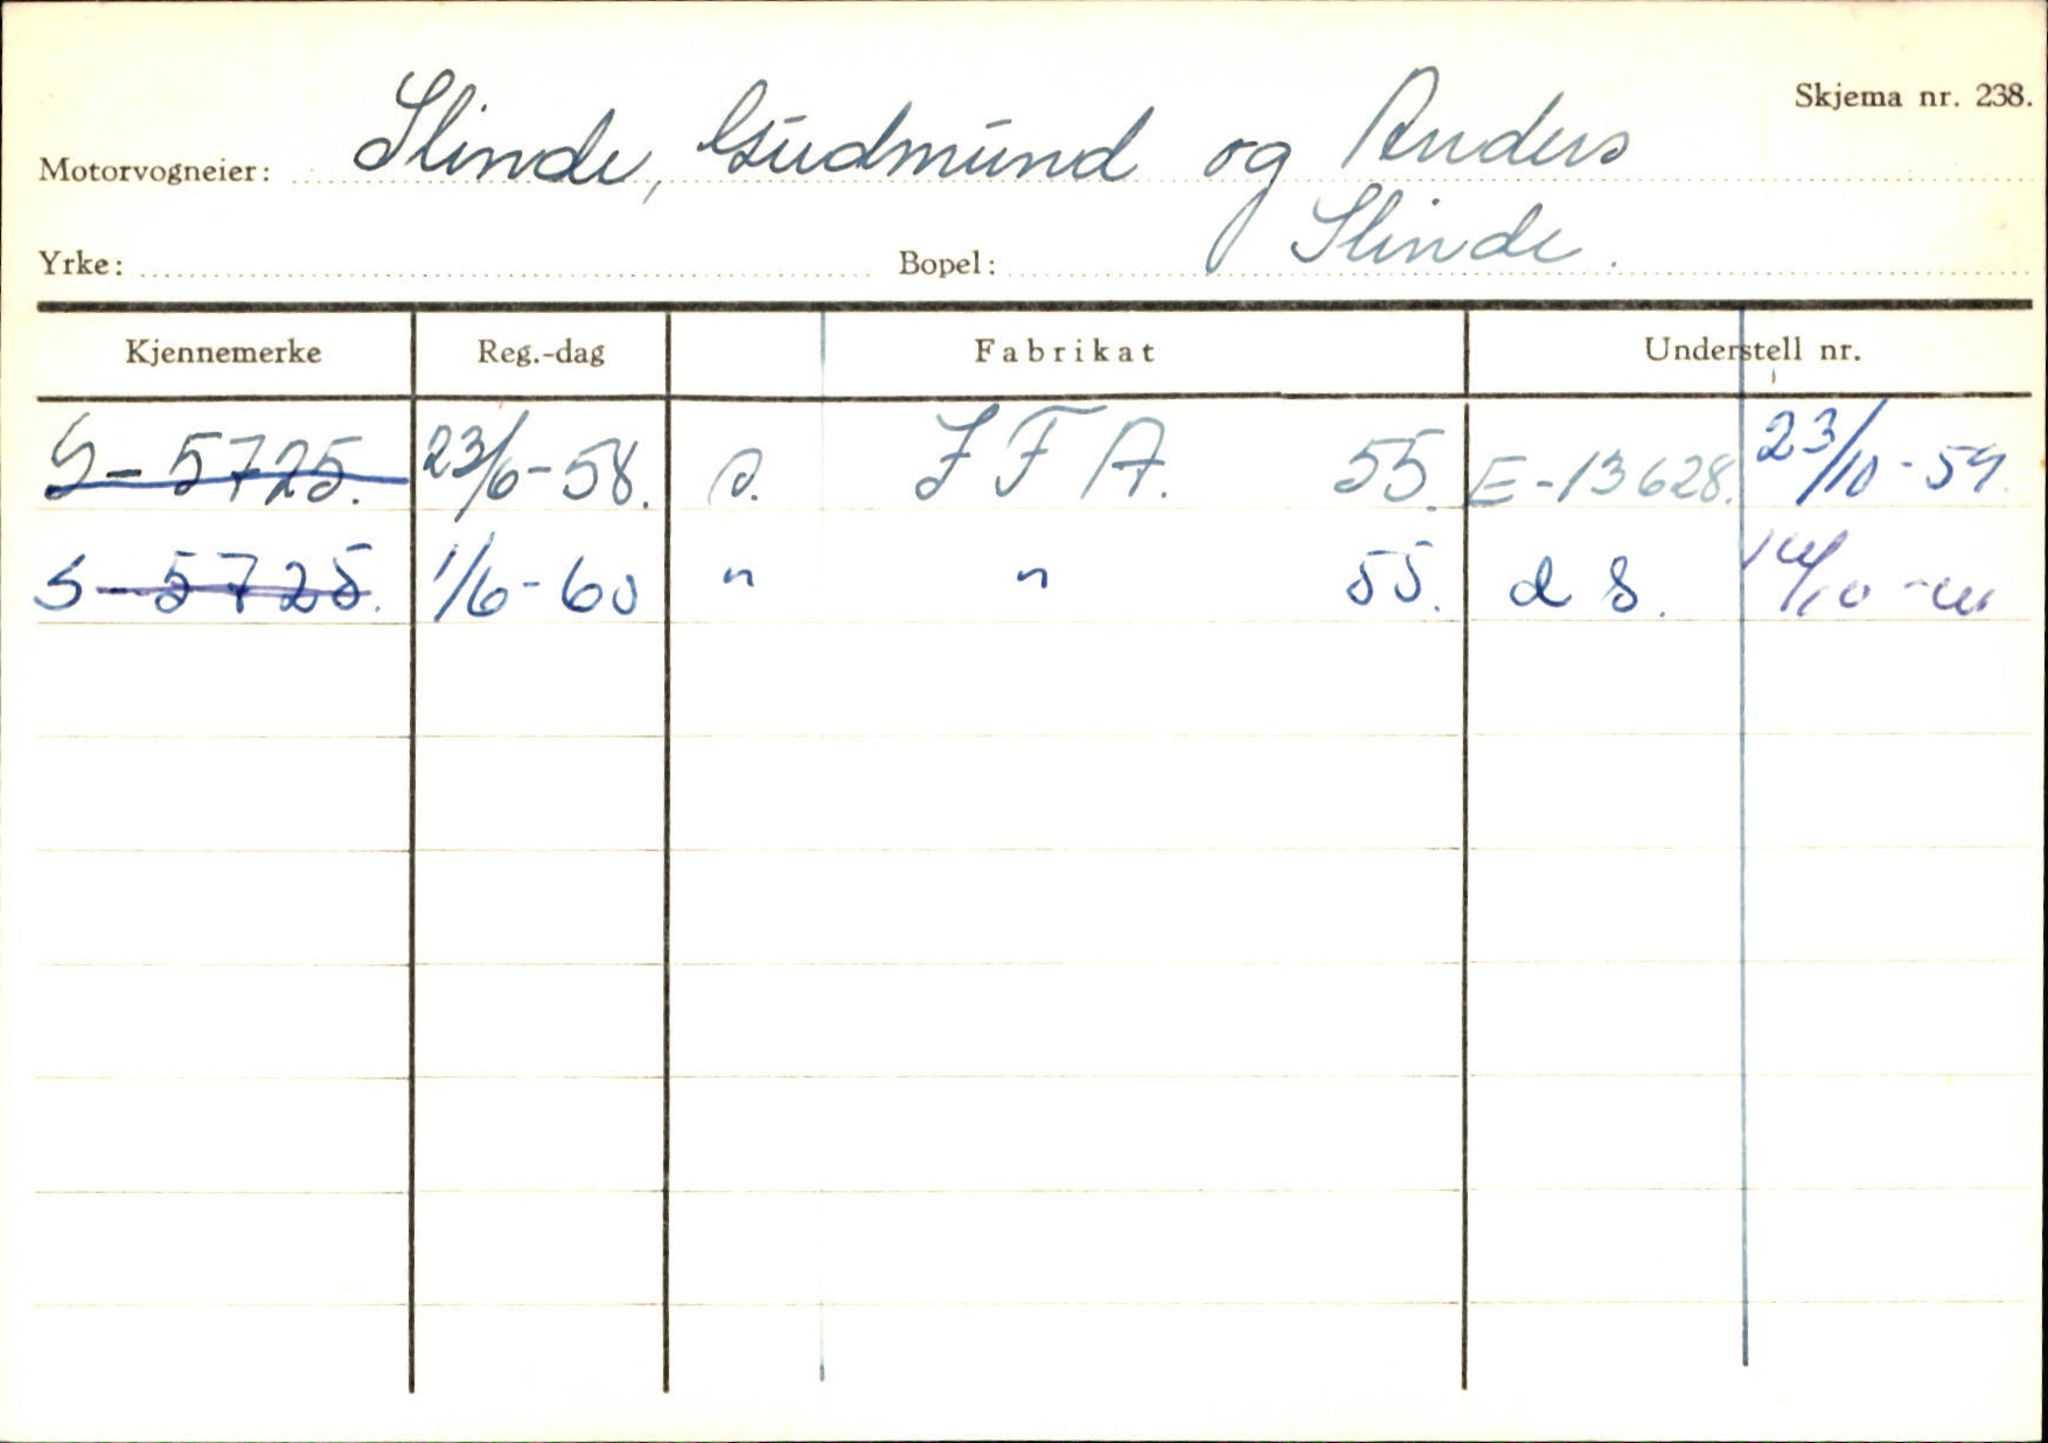 Skjema nr. 238.
Motorvogneier: Slinde, Gudmund og Anders
Yrke: Bopel: Slinde.
Kjennemerke Reg.-dag Fabrikat Understell nr.
S-5725. 23/6-58. s. IFA. 55. E-13628. 23/10-59.
S-5725. 1/6-60 " " 55. d s.